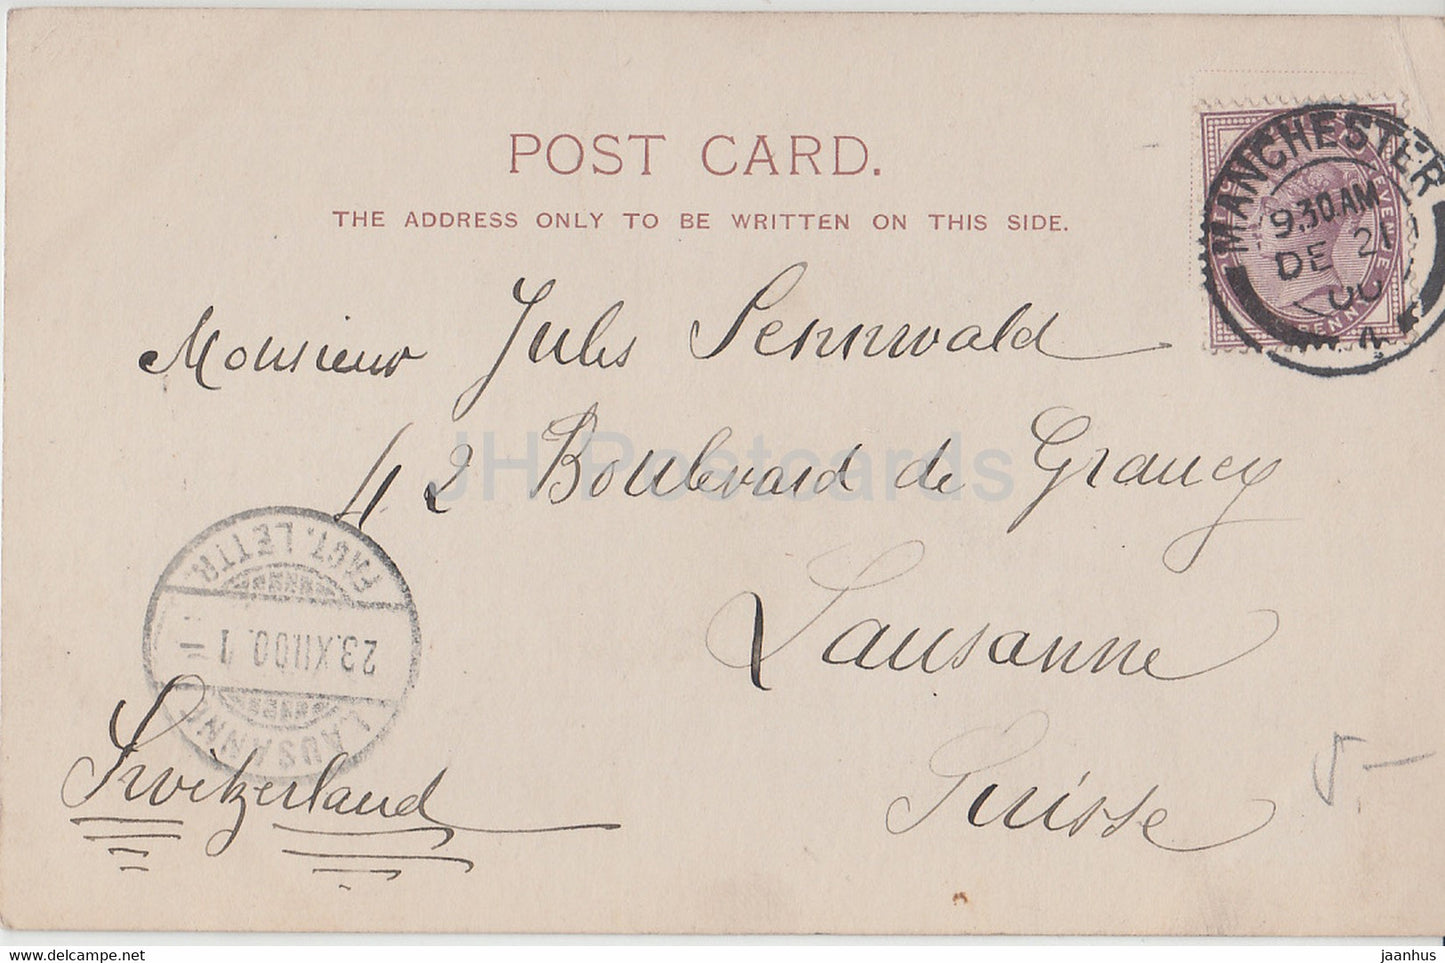 POST CARD.
THE ADDRESS ONLY TO BE WRITTEN ON THIS SIDE.
MANCHESTER
9.30.AM
DE 21
00
Monsieur Jules Sennwald
42 Boulevard de Grancy
Lausanne
Suisse
Switzerland
LAUSANNE
23.XII.00. 1
FACT. LETTR.
JH Postcards
https://www.delcampe.net
jaanhus